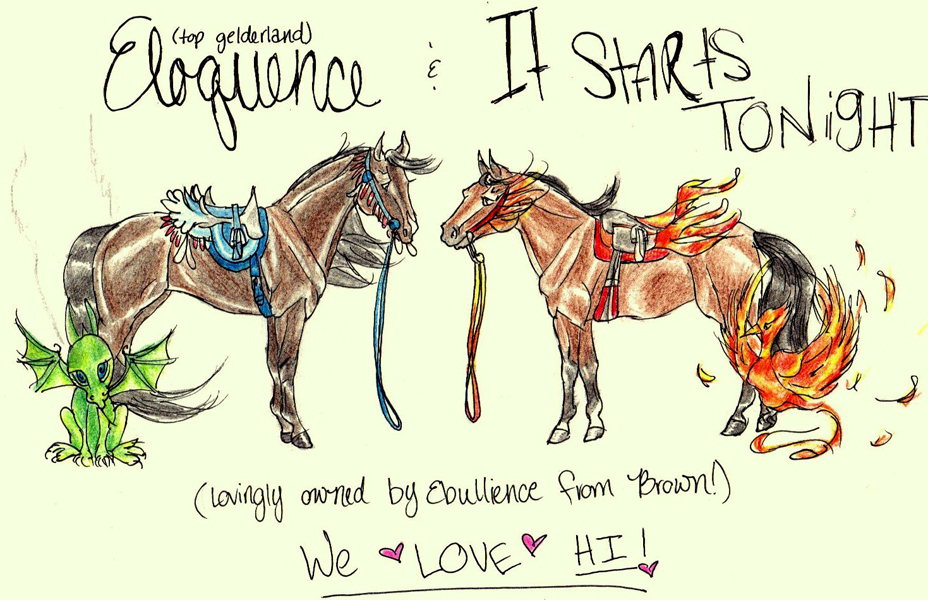 (top gelderland)
Eloquence & It Starts
Tonight
(lovingly owned by Ebullience from Brown!)
We LOVE HI!